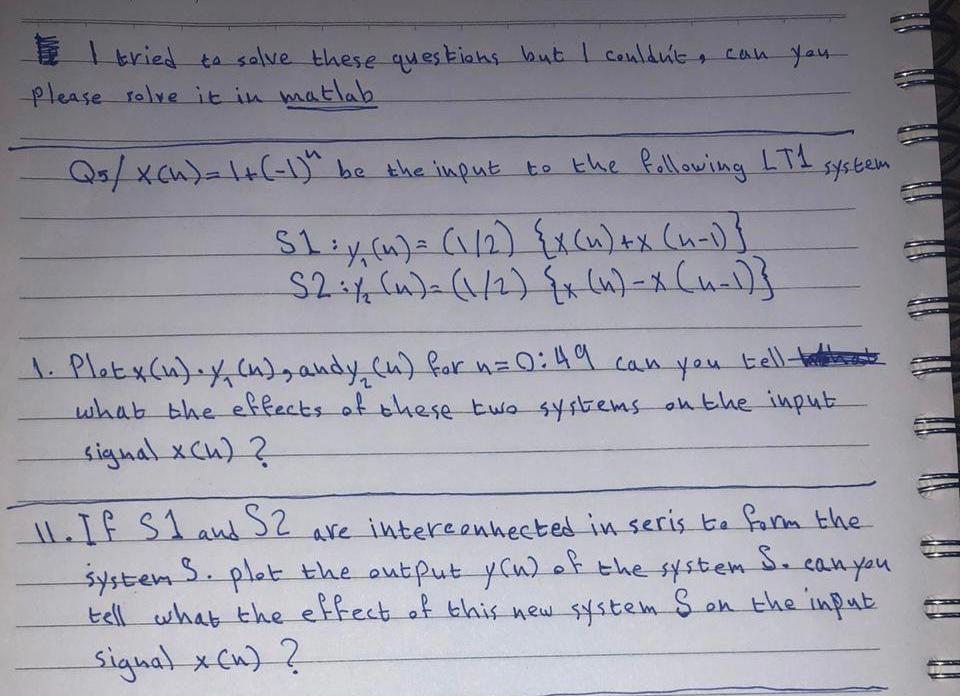 I tried to solve these questions but I couldn't, can you
please solve it in matlab
Q5/ x(n)=1+(-1)^n be the input to the following LTI system
S1: y₁(n)= (1/2) {x(n)+x(n-1)}
S2: y₂(n)=(1/2) {x(n)-x(n-1)}
I. Plot x(n). y₁(n), and y₂(n) for n=0:49 can you tell
what the effects of these two systems on the input
signal x(n) ?
II. If S1 and S2 are interconnected in seris to form the
system S. plot the output y(n) of the system S. can you
tell what the effect of this new system S on the input
signal x(n) ?